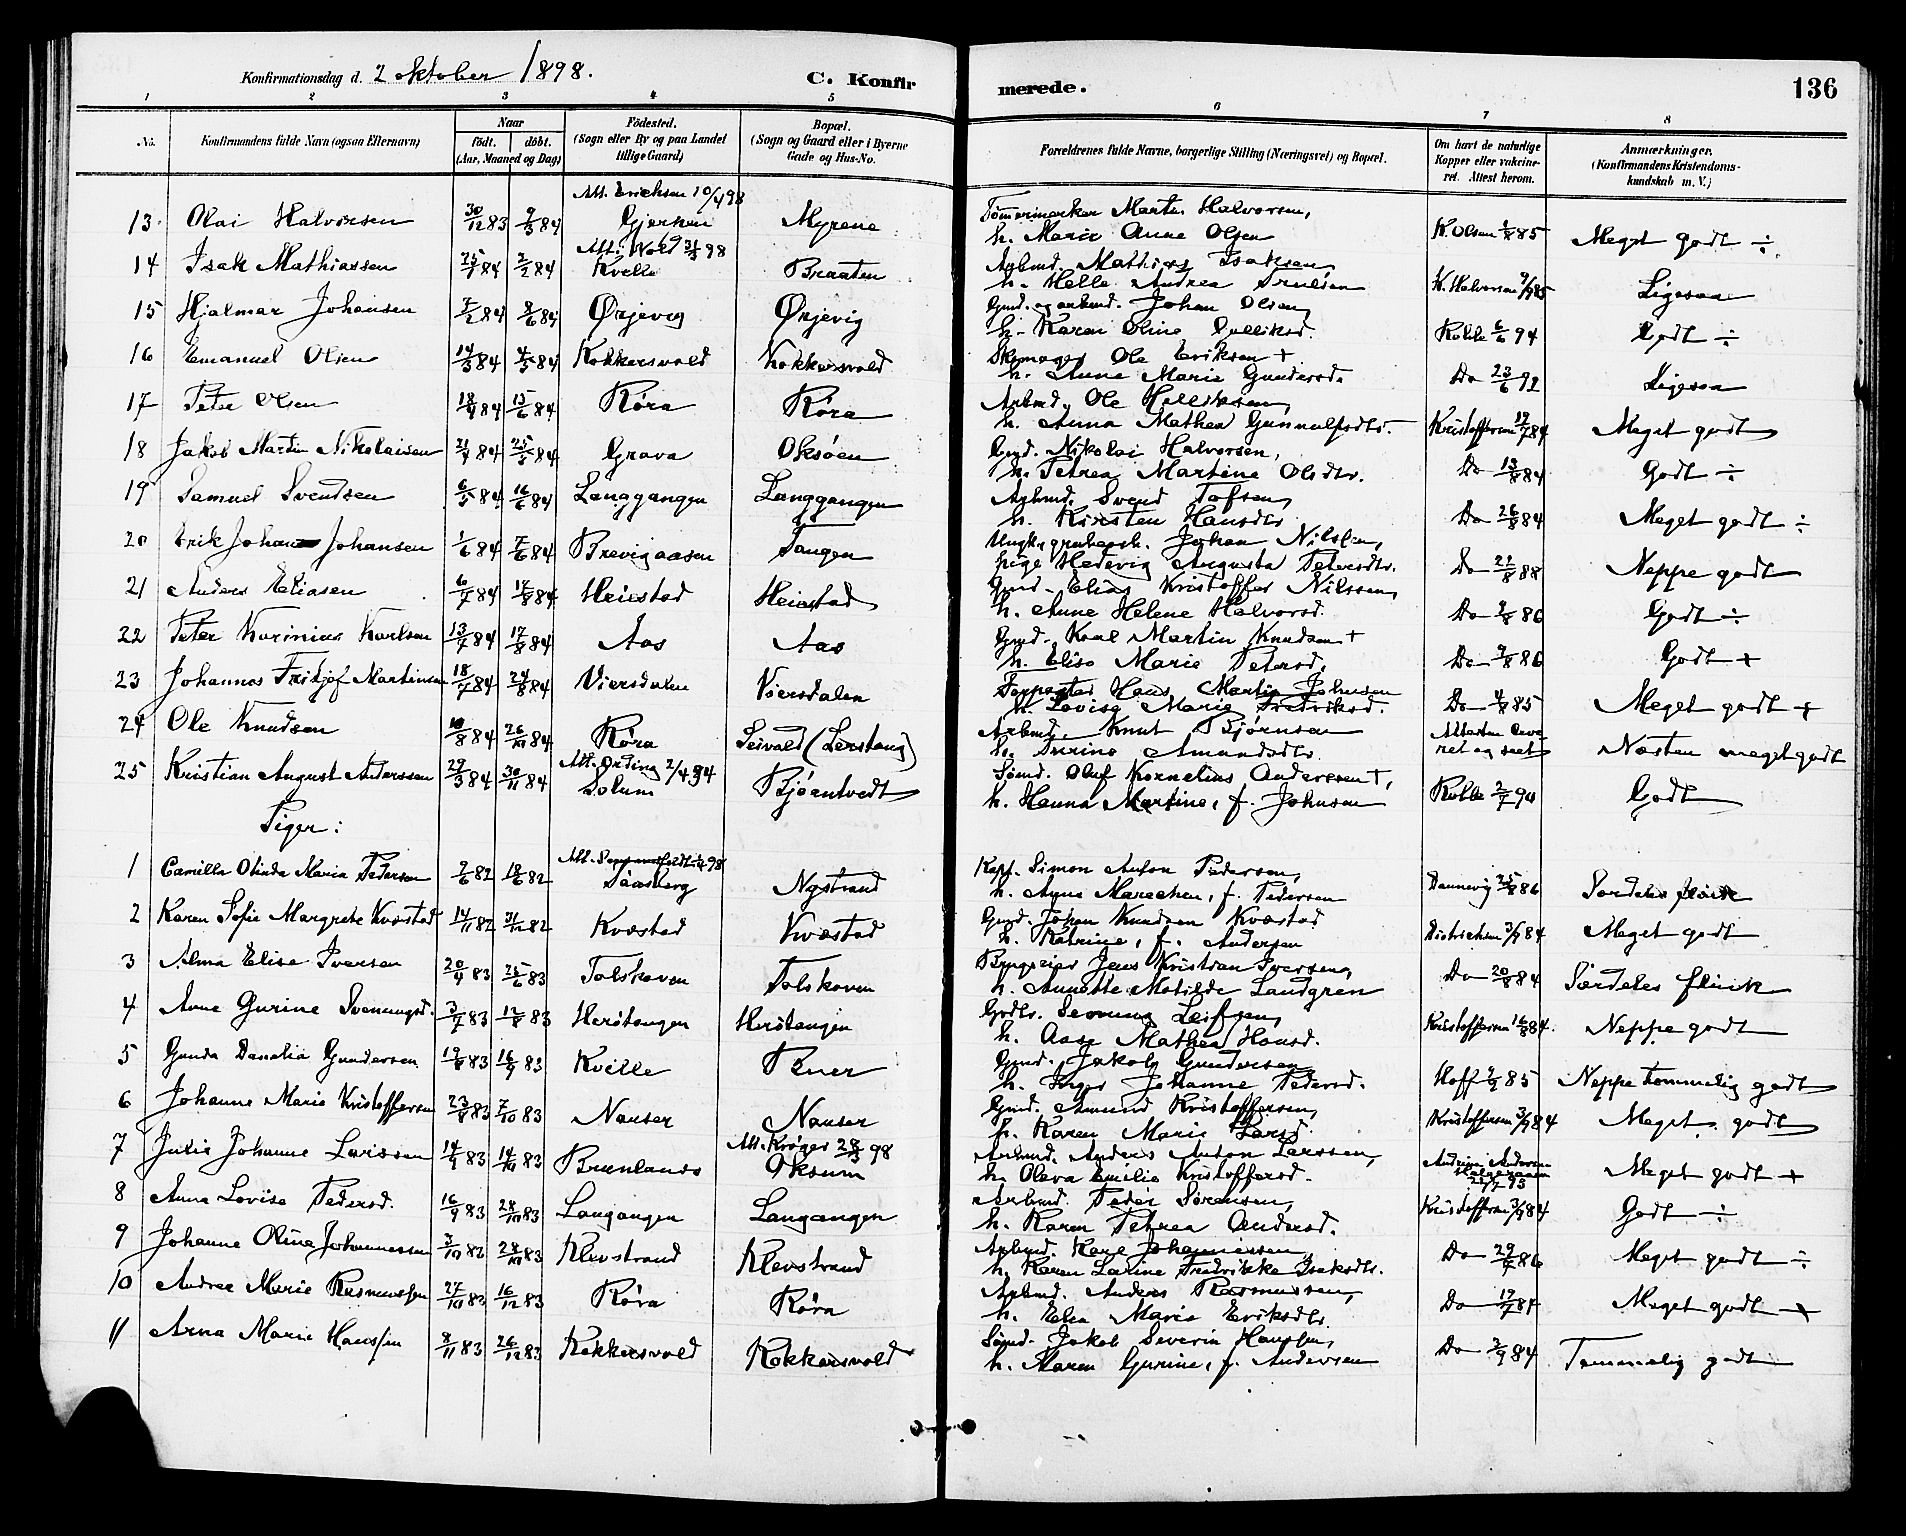 Konfirmationsdag d. 2 oktober 1898.
C. Konfirmerede.
136
1 2 3 4 5 6 7 8
No. Konfirmandens fulde Navn (ogsaa Efternavn) Naar født. døbt. (Aar, Maaned og Dag) Fødested. (Sogn eller By og paa Landet tillige Gaard) Bopæl. (Sogn og Gaard eller i Byerne Gade og Hus-No. Forældrenes fulde Navne, borgerlige Stilling (Næringsvei) og Bopæl. Om havt de naturlige Kopper eller vakcineret. Attest herom. Anmærkninger. (Konfirmandens Kristendomskundskab m. V.)
Att. Erichsen 10/4 98
13 Olai Halvorsen 30/12 83 9/3 84 Gjerken Myrene Tømmermerker Marte Halvorsen, h. Marie Anne Olsen K. Olsen 85 Meget godt ÷
14 Isak Mathiassen 25/1 84 2/2 84 Att. Wold 31/3 98 Kville Braaten Arbmd. Mathias Isaksen, h. Helle Andrea K. Halvorsen 85 Ligesaa
15 Hjalmar Johansen 7/2 84 8/6 84 Ørjevig Ørjevig Gmd. og arbmd. Johan Olsen, h. Karen Oline Gulliksd. Kolle 6/6 94 Godt ÷
16 Emanuel Olsen 14/3 84 4/5 84 Kokkersvold Kokkersvold Skomager Ole Eriksen + h. Anne Marie Gundersd. Do 23/6 92 Ligesaa
17 Peter Olsen 18/4 84 15/6 84 Røra Røra Arbmd. Ole h. Anna Mathea Gunnulfsdtr. Kristoffersen 84 Meget godt
18 Jakob Martin Nikolaisen 21/4 84 25/5 84 Grava Oksøen Gmd. Nikolai Halvorsen, h. Petrea Martine Olsdtr. Do 13/8 84 Godt ÷
19 Samuel Svendsen 6/5 84 16/6 84 Langgangen Langgangen Arbmd. Svend Tofsen, h. Kirsten Hansdtr. Do 26/8 84 Meget godt ÷
20 Erik Johan Johansen 1/6 84 7/6 84 Brevigaasen Tangen Ungk. Johan Nilsen, pige Hedevig Augusta Petersdtr. Do 22/8 88 Neppe godt
21 Anders Eliasen 6/7 84 17/8 84 Heistad Heistad Gmd. Elias Kristoffer Nilssen, h. Anne Helene Halvorsd. Do 86 Godt ÷
22 Peter Karinius Karlsen 13/7 84 17/8 84 Aas Aas Gmd. Karl Martin Knudsen + h. Elise Marie Petersd. Do 86 Godt +
23 Johannes Fritjof Martinsen 18/7 84 24/8 84 Viersdalen Viersdalen Hans Martin Johnsen h. Lovise Marie Fredriksd. Do 85 Meget godt +
24 Ole Knudsen 10/8 84 26/10 84 Røra Seivald (Lerstang) Arbmd. Knut Bjørnsen h. Amundsdtr. Attesten leveret og seet Næsten meget godt
25 Kristian August Anderssen 29/3 84 30/11 84 Att. Ording 2/4 94 Solum Bjørntvedt Sømd. Oluf Kornelius Andersen +, h. Hanna Martine, f. Johnsen Kolle 94 Godt
Piger:
1 Camilla Olinda Maria Pedersen 9/6 82 18/6 82 98 Tønsberg Nystrand Kapt. Simon Anton Pedersen, h. Anne Marechen, f. Pedersen Dannevig 25/8 86 Særdeles flink
2 Karen Sofie Margrete Kvæstad 14/11 82 31/12 82 Kvæstad Kvæstad Gmd. Johan Knudsen Kvæstad h. Katrine, f. Andersen 84 Meget godt
3 Alma Elise Iversen 20/4 83 25/6 83 Tolskoven Tolskoven Jens Kristian Iversen, h. Annette Matilde Landgren Do 20/8 84 Særdeles flink
4 Anne Gurine Svenungsd. 3/7 83 12/8 83 Herøtangen Herøtangen Leifsen, h. Aase Mathea Hansd. Kristoffersen 16/8 84 Neppe godt
5 Gunda Danalia Gundersen 83 16/9 83 Kville Rner Gmd. Jakob Gundersen h. Inger Johanne Pedersd. Hoff 85 Neppe tommelig godt
6 Johanne Marie Kristoffersen 23/8 83 7/10 83 Nanser Nanser Gmd. Amund Kristoffersen, h. Karen Marie Larsd. Kristoffersen 3/9 84 Meget godt
7 Julie Johanne Larssen 14/9 83 14/10 83 Brunlanæs Att. Krøger 28/3 98 Oksum Arbmd. Anders Anton Larssen, h. Oleva Emilie Kristoffersd. Andersen 95 Meget godt +
8 Anna Lovise Pedersd. 16/9 83 28/10 83 Langangen Langangen Arbmd. Peder Sørensen, h. Karen Petrea Andersd. Kristoffersen 3/9 84 Godt ÷
9 Johanne Oline Johannessen 3/10 83 28/10 83 Klevstrand Klevstrand Arbmd. Karl Johannessen h. Karen Larine Fredrikke Isaksdtr. Do 86 Meget godt ÷
10 Andrea Marie Rasmussen 27/10 83 16/12 83 Røra Røra Arbmd. Anders Rasmussen, h. Elen Marie Eriksdtr. Do 84 Meget godt +
11 Anna Marie Hanssen 8/11 83 26/12 83 Kokkersvold Kokkersvold Sømd. Jakob Severin Hanssen, h. Maren Gurine, f. Andersen Do 2/9 84 Temmelig godt